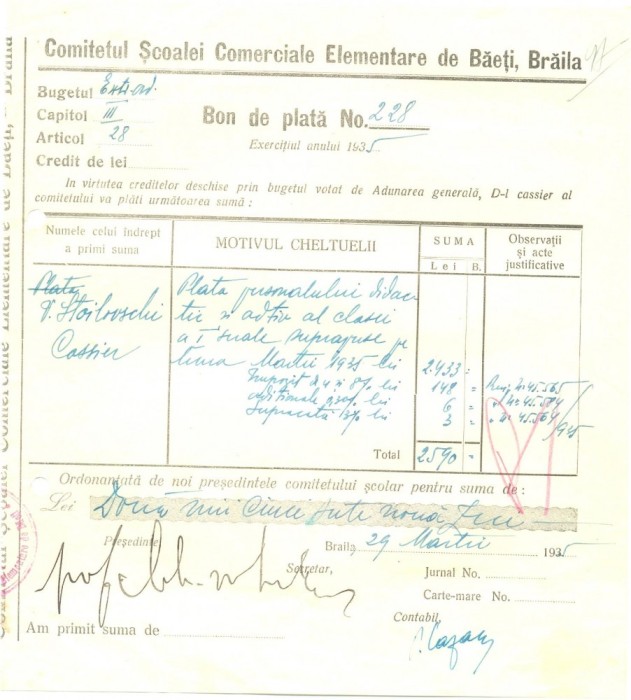 Comitetul Școalei Comerciale Elementare de Băeți, Brăila
Bugetul Extr-ord.
Capitol III
Articol 28
Credit de lei
Bon de plată No. 228
Exercițiul anului 1935
In virtutea creditelor deschise prin bugetul votat de Adunarea generală, D-l cassier al
comitetului va plăti următoarea sumă :
Numele celui îndrept
a primi suma
MOTIVUL CHELTUELII
SUMA
Lei B.
Observații
și acte
justificative
Plata
V. Stoilovschi
Cassier
Plata personalului didac
tic și adtiv al clasei
a I suprapuse pe
Martie 1935 lei 2433
Impozit 8% lei 148
aditionale lei 6
lei 3
Total 2590
Ordonanțată de noi președintele comitetului școlar pentru suma de :
Lei Două mii cinci sute nouă zeci
Președinte,
Secretar,
Braila, 29 Martie 1935
Jurnal No.
Carte-mare No.
Contabil,
Am primit suma de